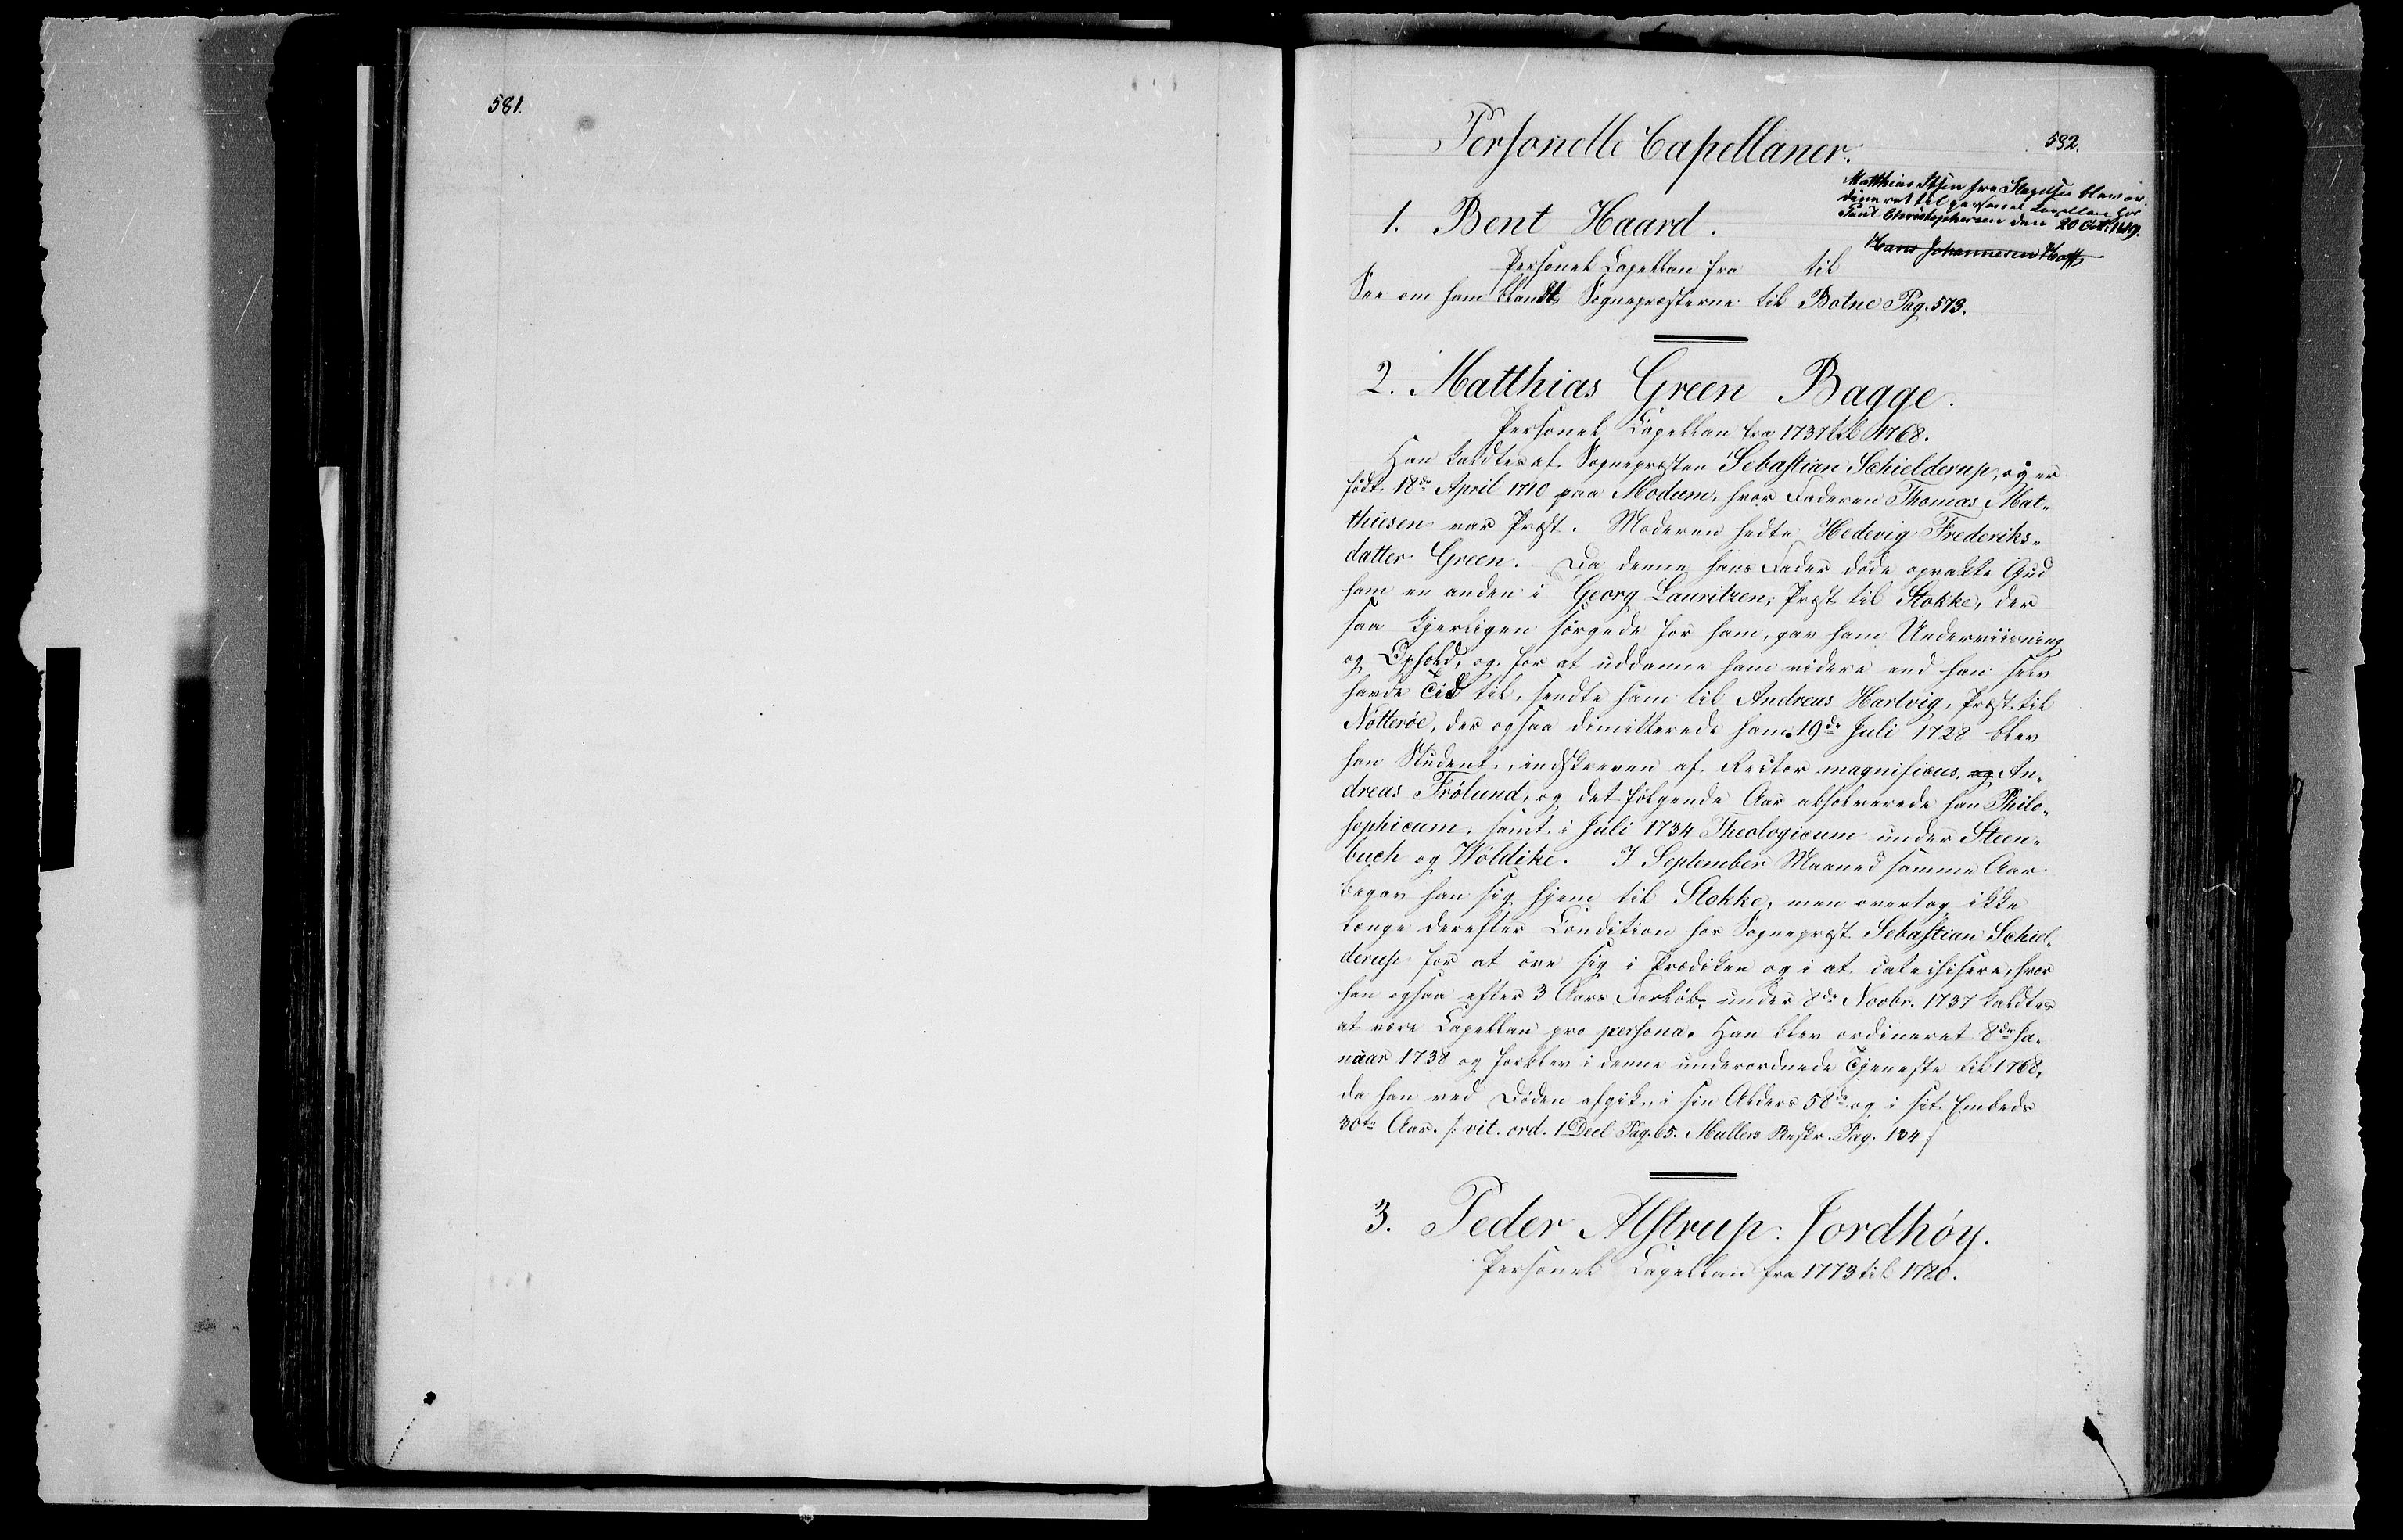 581.
582.
Personelle Capellaner.
Matthias Ibsen fra Slagelse blev or-
dineret til personel Capellan hos
Poul Christophersen den 20 Oct. 1619.
Hans Johannesen Hoff
1. Bent Haard.
Personel Capellan fra til
See om ham blandt Sognepræsterne til Botne Pag. 573.
2. Matthias Green Bagge.
Personel Capellan fra 1737 til 1768.
Han kaldtes af Sognepræsten Sebastian Schielderup, og er
født 18de April 1710 paa Modum, hvor Faderen Thomas Mat-
thiesen var Præst. Moderen hedte Hedevig Frederiks-
datter Green. Da denne hans Fader døde opvakte Gud
ham en anden i Georg Lauritzen, Præst til Stokke, der
saa kjerligen sørgede for ham, gav ham Underviisning
og Ophold, og for at uddanne ham videre end han selv
havde Tid til, sendte ham til Andreas Hartvig, Præst til
Nøtterøe, der ogsaa dimitterede ham. 19de Juli 1728 blev
han Student, indskreven af Rector magnificus, og An-
dreas Frølund, og det følgende Aar absolverede han Philo-
sophicum, samt i Juli 1734 Theologicum under Steen-
buch og Wøldike. I September Maaned samme Aar
begav han sig hjem til Stokke, men overtog ikke
længe derefter Condition hos Sognepræst Sebastian Schiel-
derup for at øve sig i Prædiken og i at catechisere, hvor
han ogsaa efter 3 Aars Forløb, under 8de Novbr. 1737 kaldtes
at være Capellan pro persona. Han blev ordineret 8de Ja-
nuar 1738 og forblev i denne underordnede Tjeneste til 1768,
da han ved Døden afgik, i sin Alders 58de og i sit Embeds
30te Aar. /: vit. ord. 1 Deel Pag. 65. Mullers Reskr. Pag. 134 :/
3. Peder Alstrup: Jordhøy.
Personel Capellan fra 1773 til 1780.